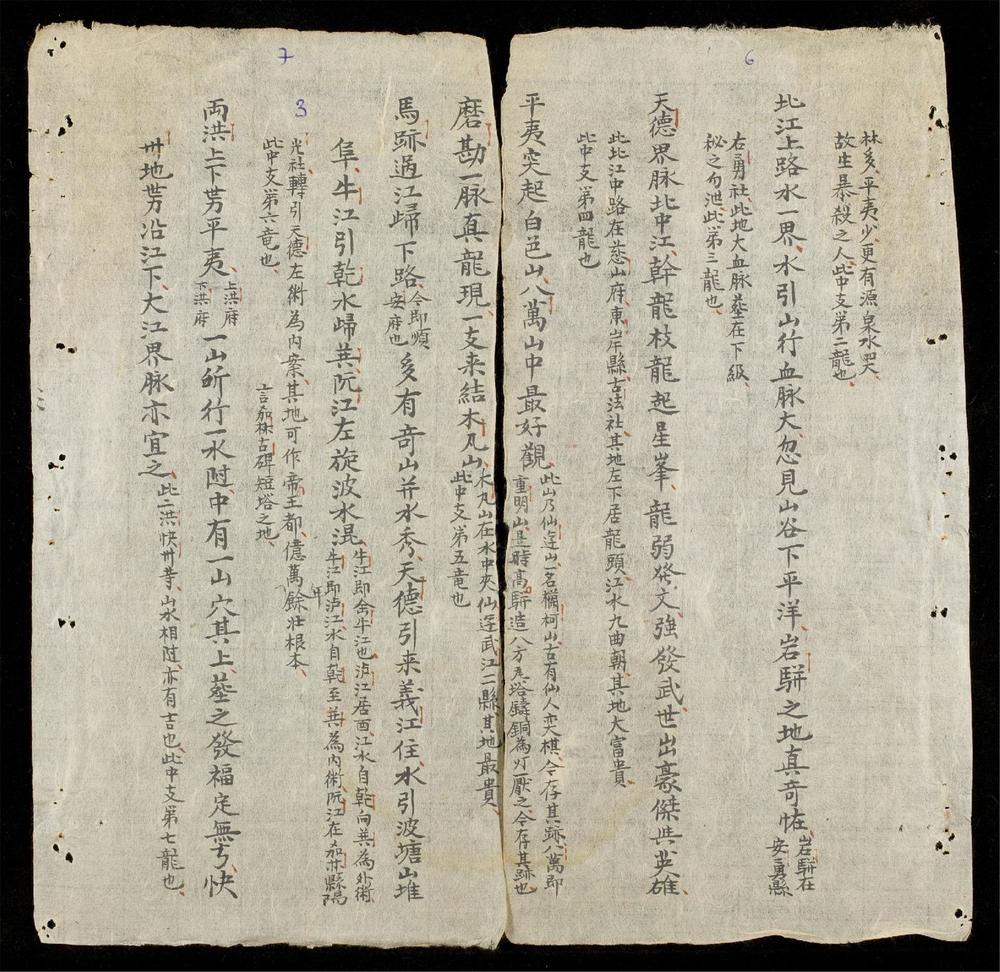 6
林多平夷少更有源泉水四天
故生暴殺之人此中支第二龍也
北江上路水一界水引山行血脉大忽見山谷下平洋岩駢之地真奇恠
岩駢在
安勇縣
右勇社此地大血脉墓在下級
秘之勿泄此第三龍也
天德界脉北中江幹龍枝龍起星峯龍弱發文強發武世出豪傑共英雄
此北江中路在慈山府東岸縣古法社其地左下居龍頭江水九曲朝其地大富貴
此中支第四龍也
平夷突起白邑山八萬山中最好觀
此山乃仙逰山一名欄柯山古有仙人奕棋今存其跡八萬即
重明山是時高駢造八方瓦塔鑄銅為灯厭之今存其跡也
7
磨勘一脉真龍現一支来結木凡山
木丸山在水中夾仙逰武江二縣其地最貴
此中支第五竜也
馬跡過江歸下路
今即順
安府也
多有奇山并水秀天德引来義江住水引波塘山堆
阜牛江引乾水歸巽阮江左旋波水混
牛江即金牛江也泸江居酉江水自乾向巽為外衛
牛江即泸江水自乾至巽為内衛阮江在茄林縣陽
3
光社轉引天德左衛為内案其地可作帝王都億萬餘年壯根本
此中支第六竜也
言茄林古碑短塔之地
両洪上下勢平夷
上洪府
下洪府
一山所行一水附中有一山穴其上墓之發福定無亏快
卅地勢沿江下大江界脉亦宜之
此二洪快卅等山水相附亦有吉也此中支第七龍也